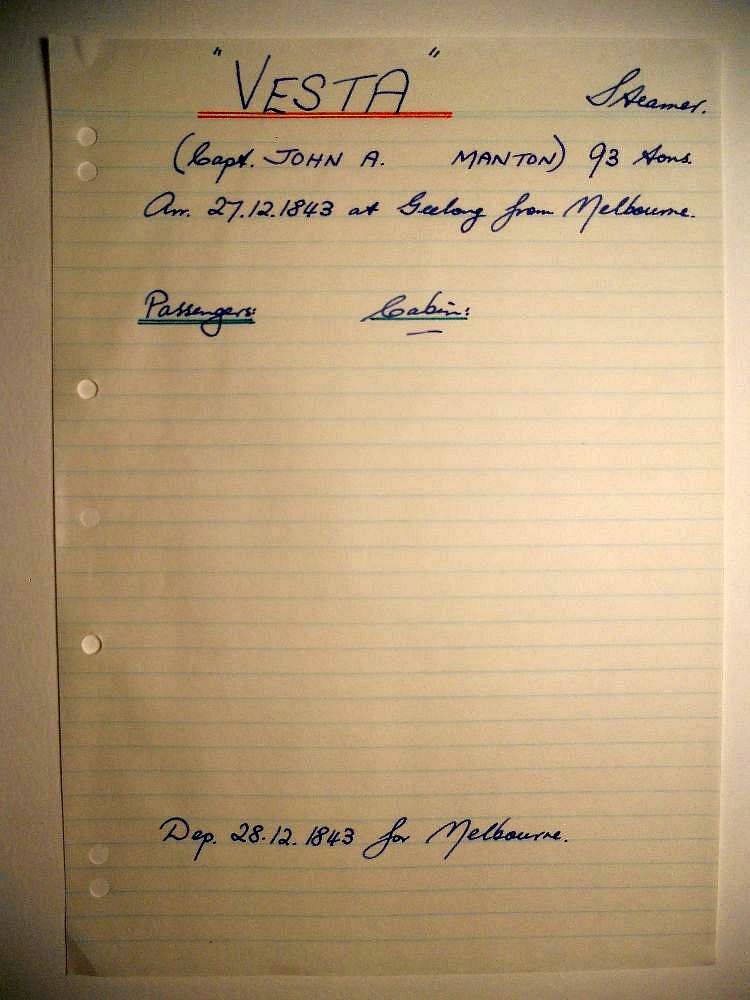 "VESTA" Steamer.
(Capt. JOHN A. MANTON) 93 tons.
Arr. 27.12.1843 at Geelong from Melbourne.
Passengers: Cabin:
Dep. 28.12.1843 for Melbourne.